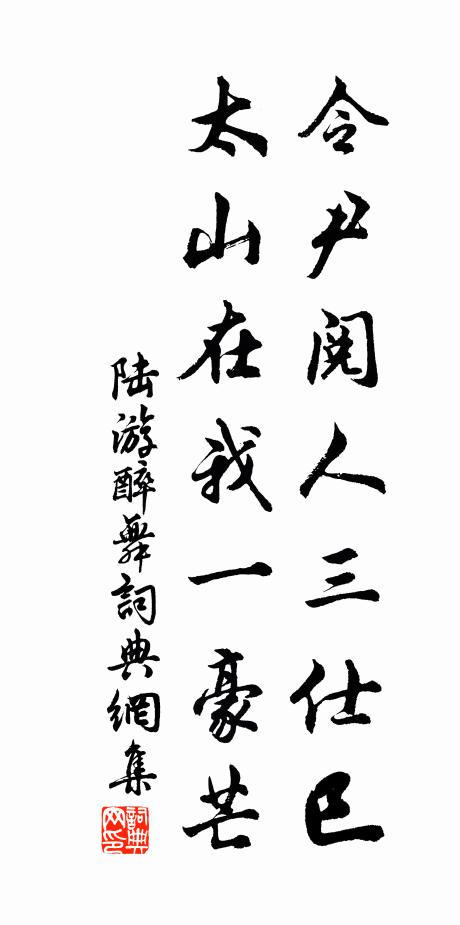 令尹閱人三仕已
太山在我一豪芒
陆游醉舞詞典網集
詞典
网印